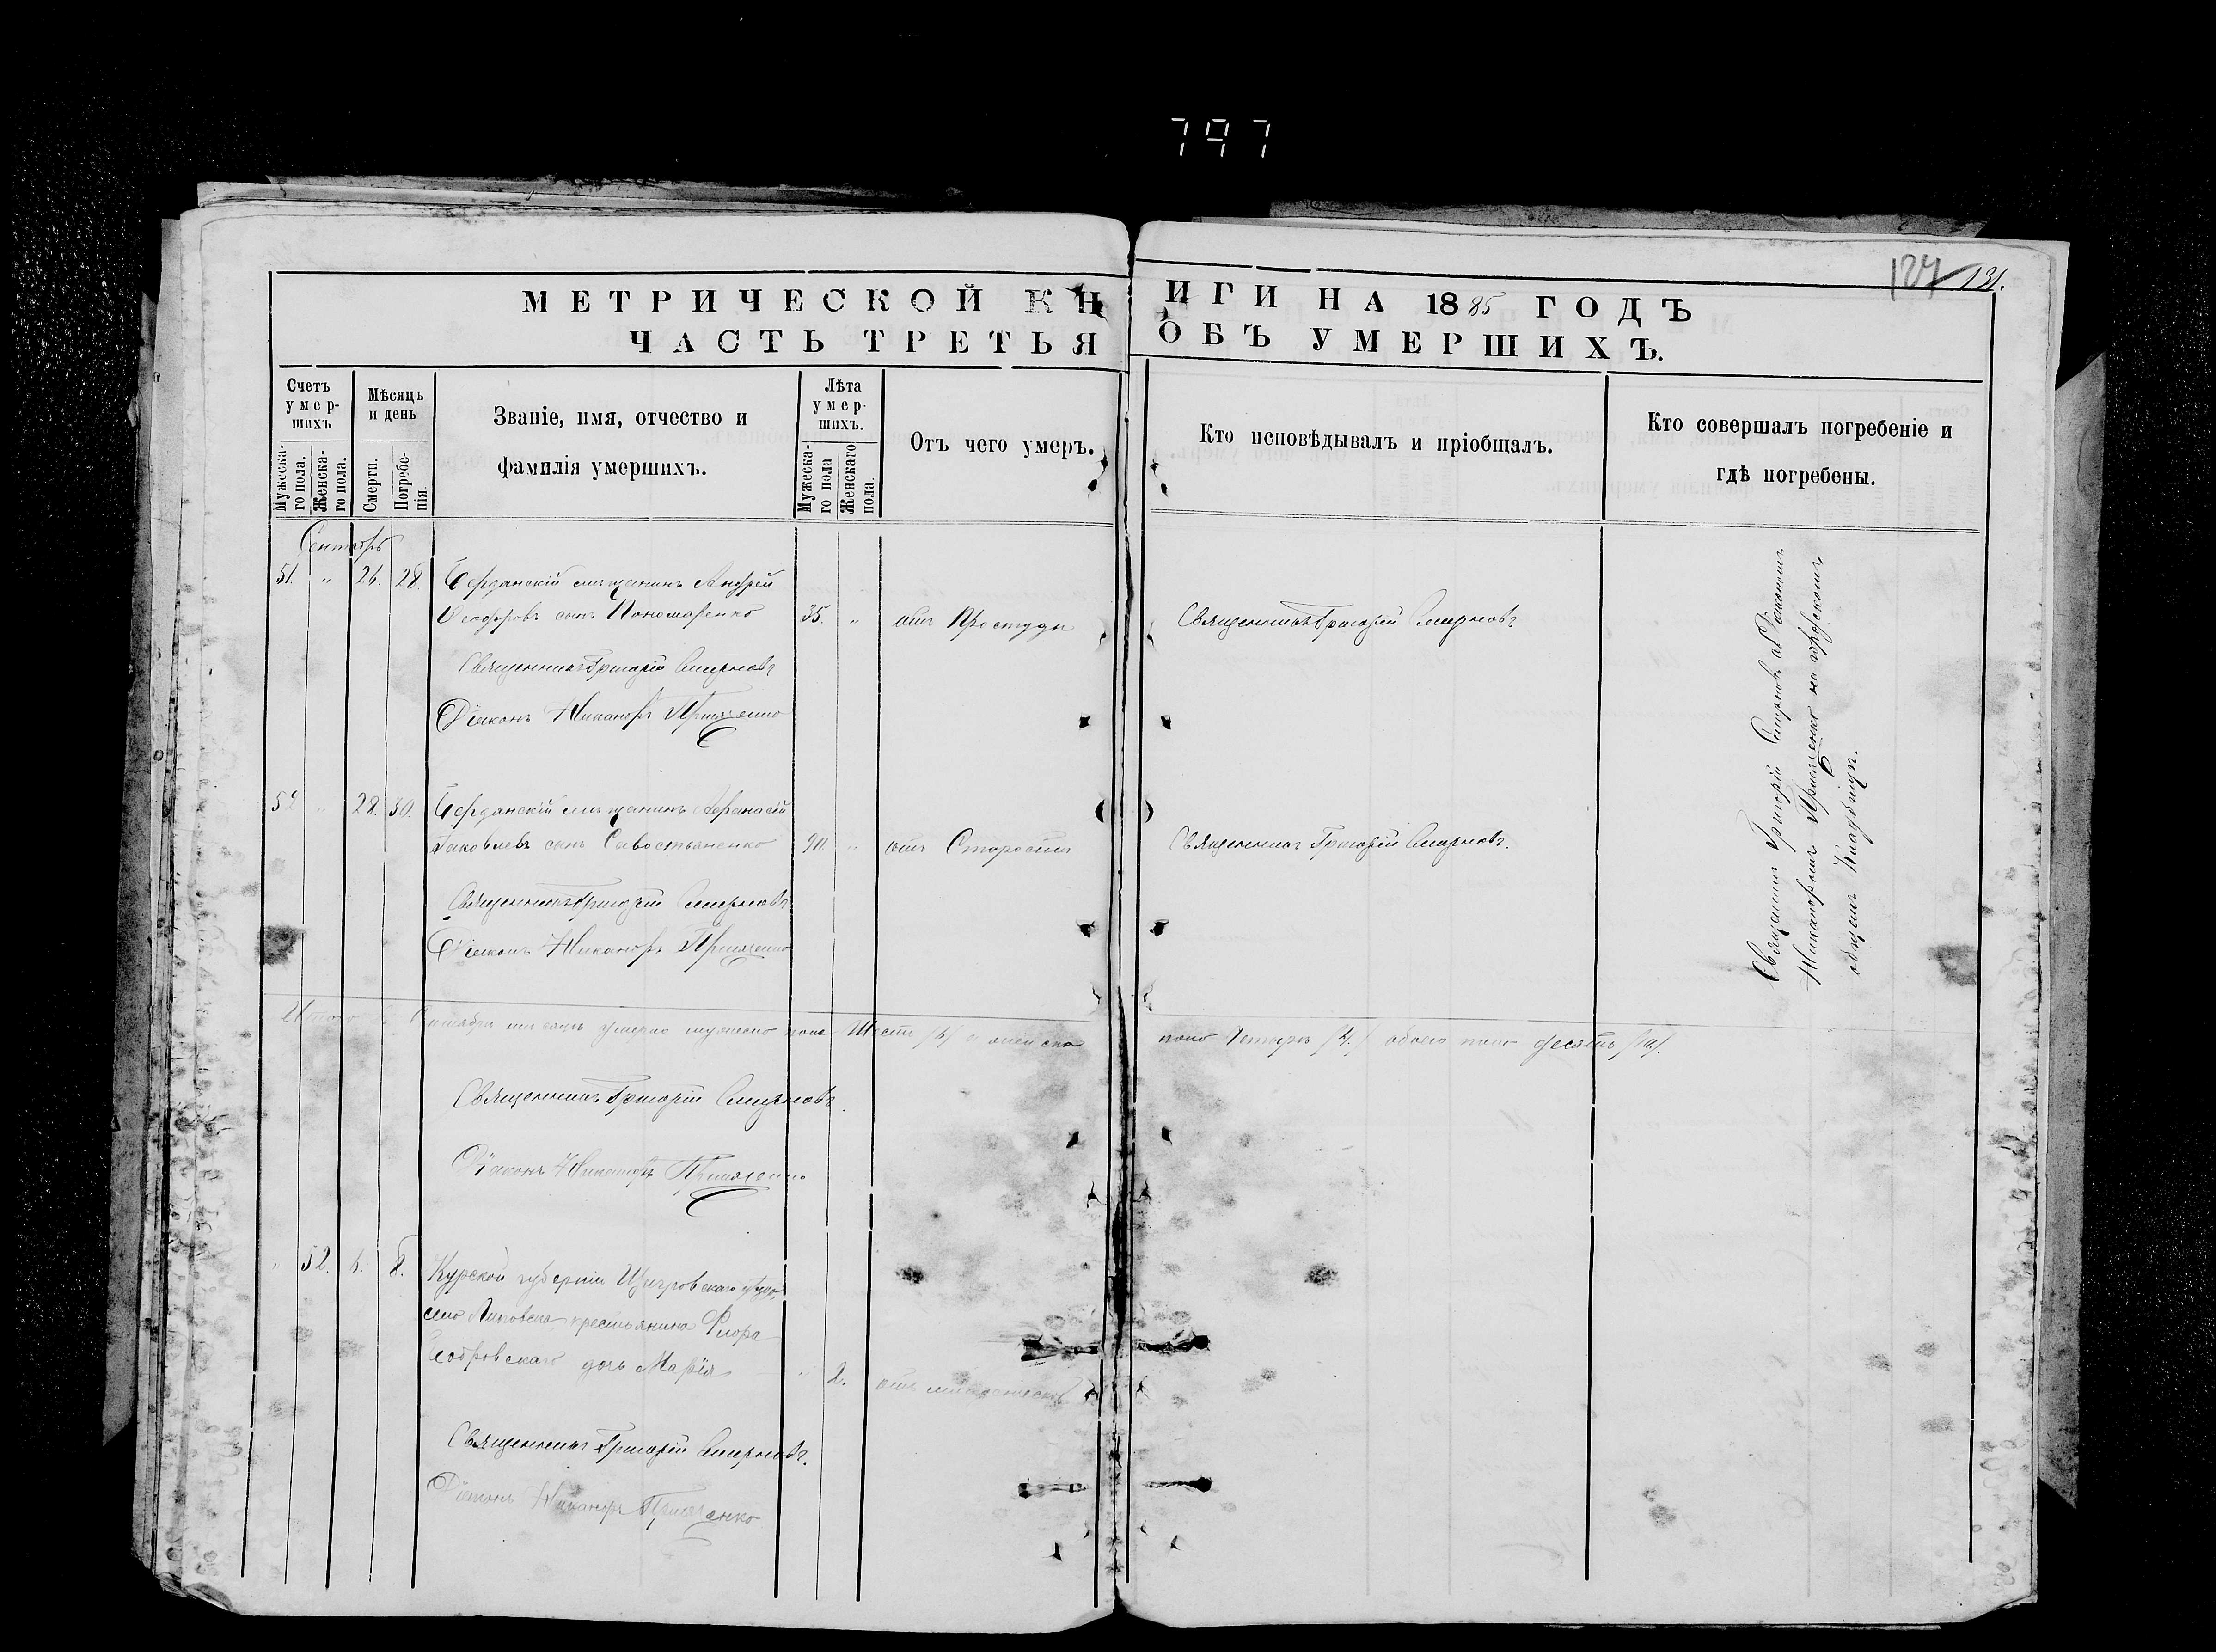 797
127 131.
МЕТРИЧЕСКОЙ КНИГИ НА 1885 ГОДЪ
ЧАСТЬ ТРЕТЬЯ ОБЪ УМЕРШИХЪ.
Счетъ умер-шихъ
Мужеска-го пола.
Женска-го пола.
Мѣсяцъ и день
Смерти.
Погребе-нія.
Званіе, имя, отчество и
фамилія умершихъ.
Лѣта умер-шихъ.
Мужеска-го пола
Женскаго пола.
Отъ чего умеръ.
Кто исповѣдывалъ и пріобщалъ.
Кто совершалъ погребеніе и
гдѣ погребены.
Сентябрь
51. " 26. 28. Бердянскій мѣщанинъ Андрей
Ѳеодоровъ сынъ Пономаренко 35. " отъ Простуды Священникъ Григорій Смирновъ
Священникъ Григорій Смирновъ
Діаконъ Никаноръ
52 " 28. 30. Бердянскій мѣщанинъ Афанасій
Яковлевъ сынъ Савостьяненко 90. " отъ Старости Священникъ Григорій Смирновъ.
Священникъ Григорій Смирновъ
Діаконъ Никаноръ
Священникъ Григорій Смирновъ съ Діакономъ
Никаноромъ на городскомъ
общемъ Кладбищѣ.
Итого въ Сентябрѣ мѣсяцѣ умерло мужеска пола Шесть /6/ и женска пола Четыре /4/ обоего пола десять /10/.
Священникъ Григорій Смирновъ.
Діаконъ Никаноръ
" 52. 6. 8. Курской губерніи Щигровскаго уѣзда
села крестьянина
дочь Марія " 2. отъ
Священникъ Григорій Смирновъ.
Діаконъ Никаноръ